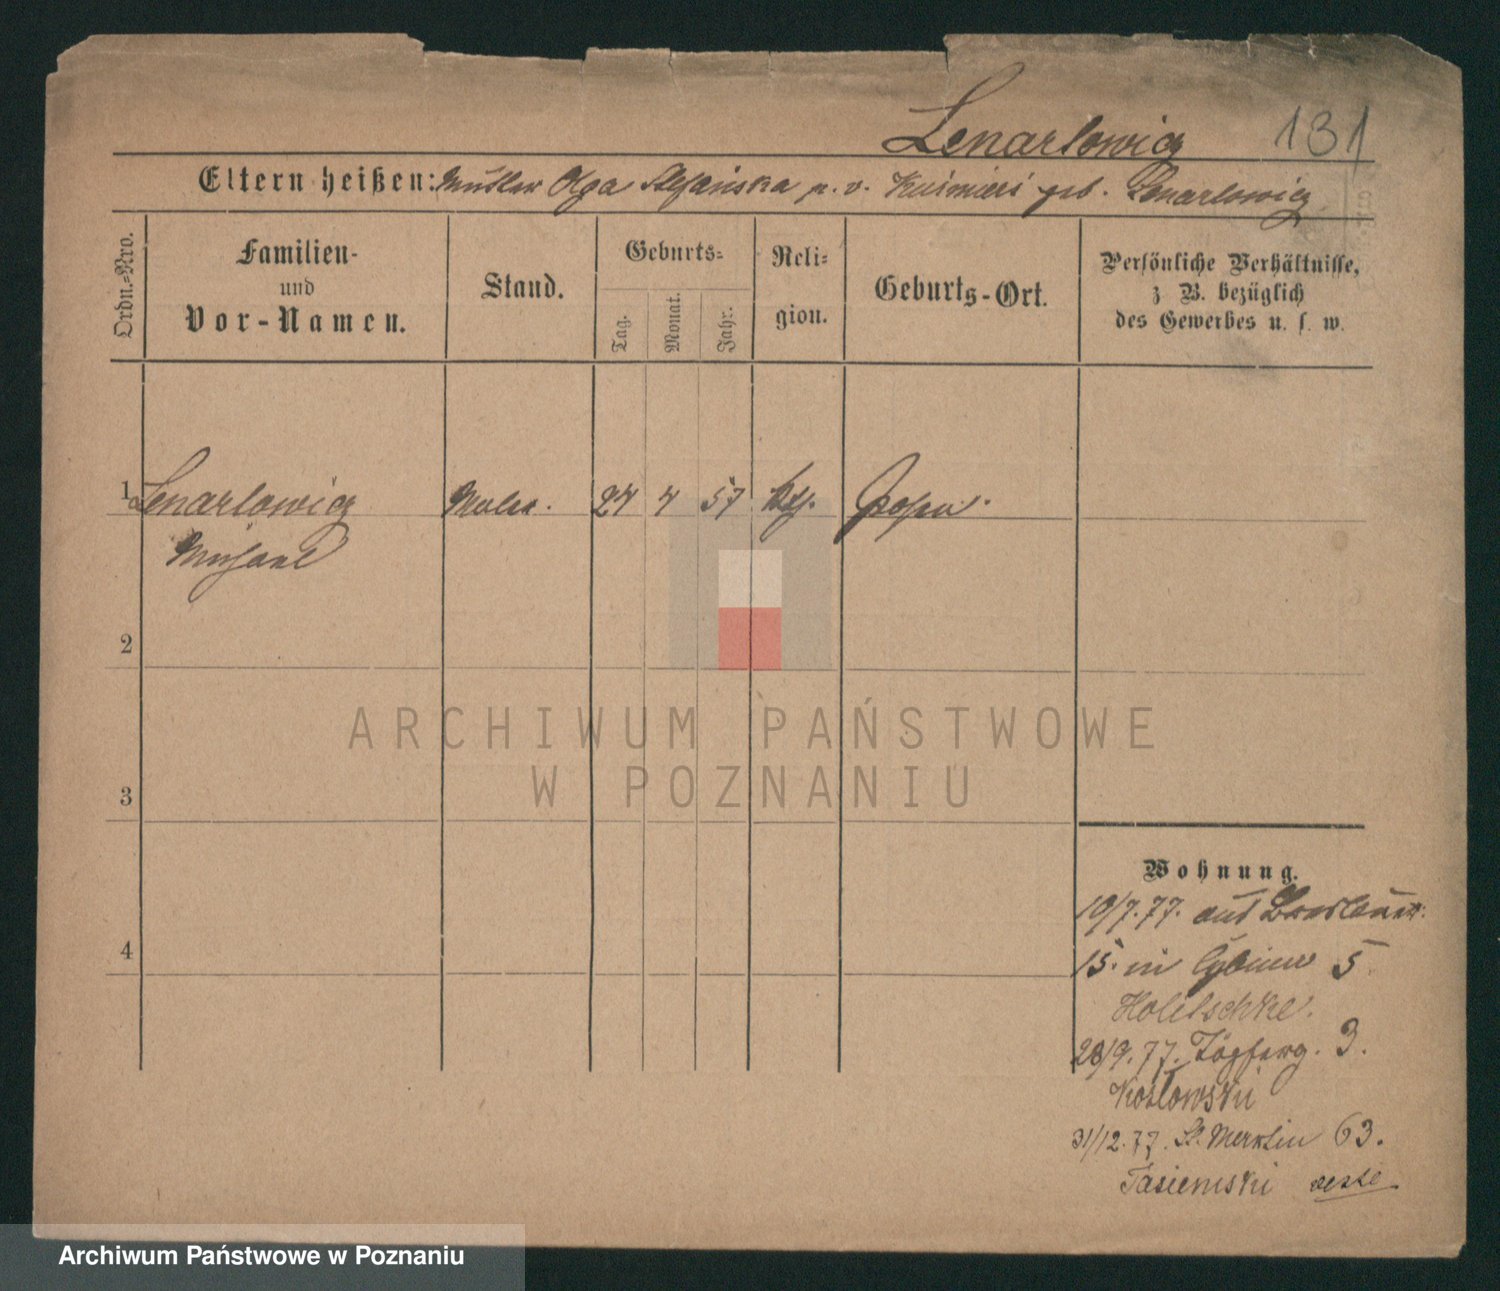 Lenartowicz 131
Eltern heißen: Mutter Olga Stefańska geb. Lenartowicz
Ordn.-Nro.
Familien-
und
Vor-Namen.
Stand.
Geburts-
Tag.
Monat.
Jahr.
Reli-
gion.
Geburts-Ort.
Persönliche Verhältnisse,
z B. bezüglich
des Gewerbes u. s. w.
1 Lenartowicz Maler. 24 4 57 kth. Posen.
Michael
2
3
4
Wohnung.
10/7.77. aus Breslauer
15. in 5
28/9.77. 3.
Kozlowski
31/12.77. St. Martin 63.
Tasiemski
ARCHIWUM PAŃSTWOWE
W POZNANIU
Archiwum Państwowe w Poznaniu